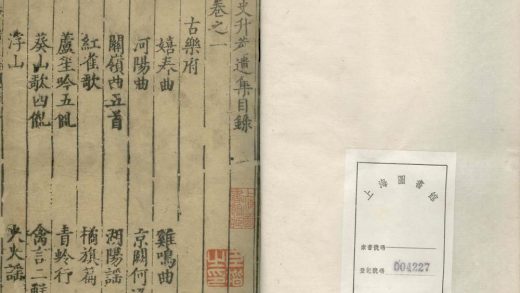 史升菴遺集目錄
卷之一
古樂府
嬉春曲 雞鳴曲
河陽曲 京關何
關嶺曲五首 湖陽謠
紅雀歌 橘旗篇
蘆笙吟五 青蛉行
葵山歌四 禽言二
浮山
上海圖書館
索書號碼
登記號碼 004227